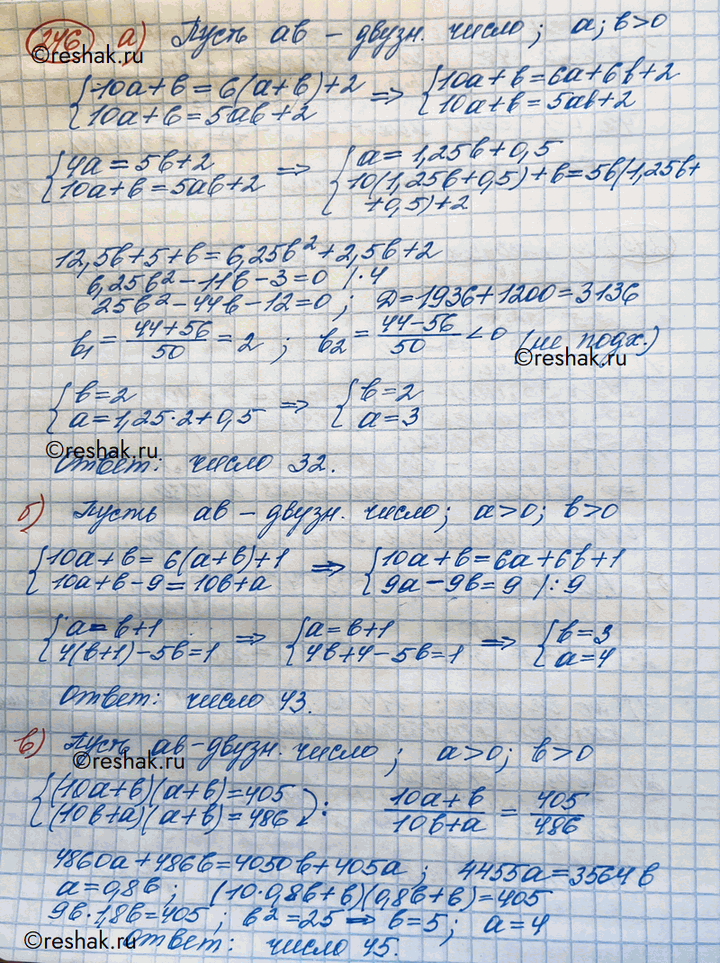 246. а) Пусть ав – двузн. число; а; в>0
©reshak.ru
{10а+в=6(а+в)+2 ⇒ {10а+в=6а+6в+2
{10а+в=5ав+2 {10а+в=5ав+2
{4а=5в+2 ⇒ {а=1,25в+0,5
{10а+в=5ав+2 {10(1,25в+0,5)+в=5в(1,25в+
+0,5)+2
12,5в+5+в=6,25в²+2,5в+2
6,25в²-11в-3=0 |·4
25в²-44в-12=0; Д=1936+1200=3136
в₁=(44+56)/50=2; в₂=(44-56)/50<0 (не подх.)
©reshak.ru
{в=2 ⇒ {в=2
{а=1,25·2+0,5 {а=3
©reshak.ru
Ответ: число 32.
б) Пусть ав – двузн. число; а>0; в>0
{10а+в=6(а+в)+1 ⇒ {10а+в=6а+6в+1
{10а+в-9=10в+а {9а-9в=9 |:9
{а=в+1 ⇒ {а=в+1 ⇒ {в=3
{4(в+1)-5в=1 {4в+4-5в=1 {а=4
Ответ: число 43.
в) Пусть ав-двузн. число; а>0; в>0
©reshak.ru
{(10а+в)(а+в)=405 : (10а+в)/(10в+а)=405/486
{(10в+а)(а+в)=486
4860а+486в=4050в+405а; 4455а=3564в
а=0,8в; (10·0,8в+в)(0,8в+в)=405
9в·1,8в=405; в²=25 ⇒ в=5; а=4
©reshak.ru
Ответ: число 45.